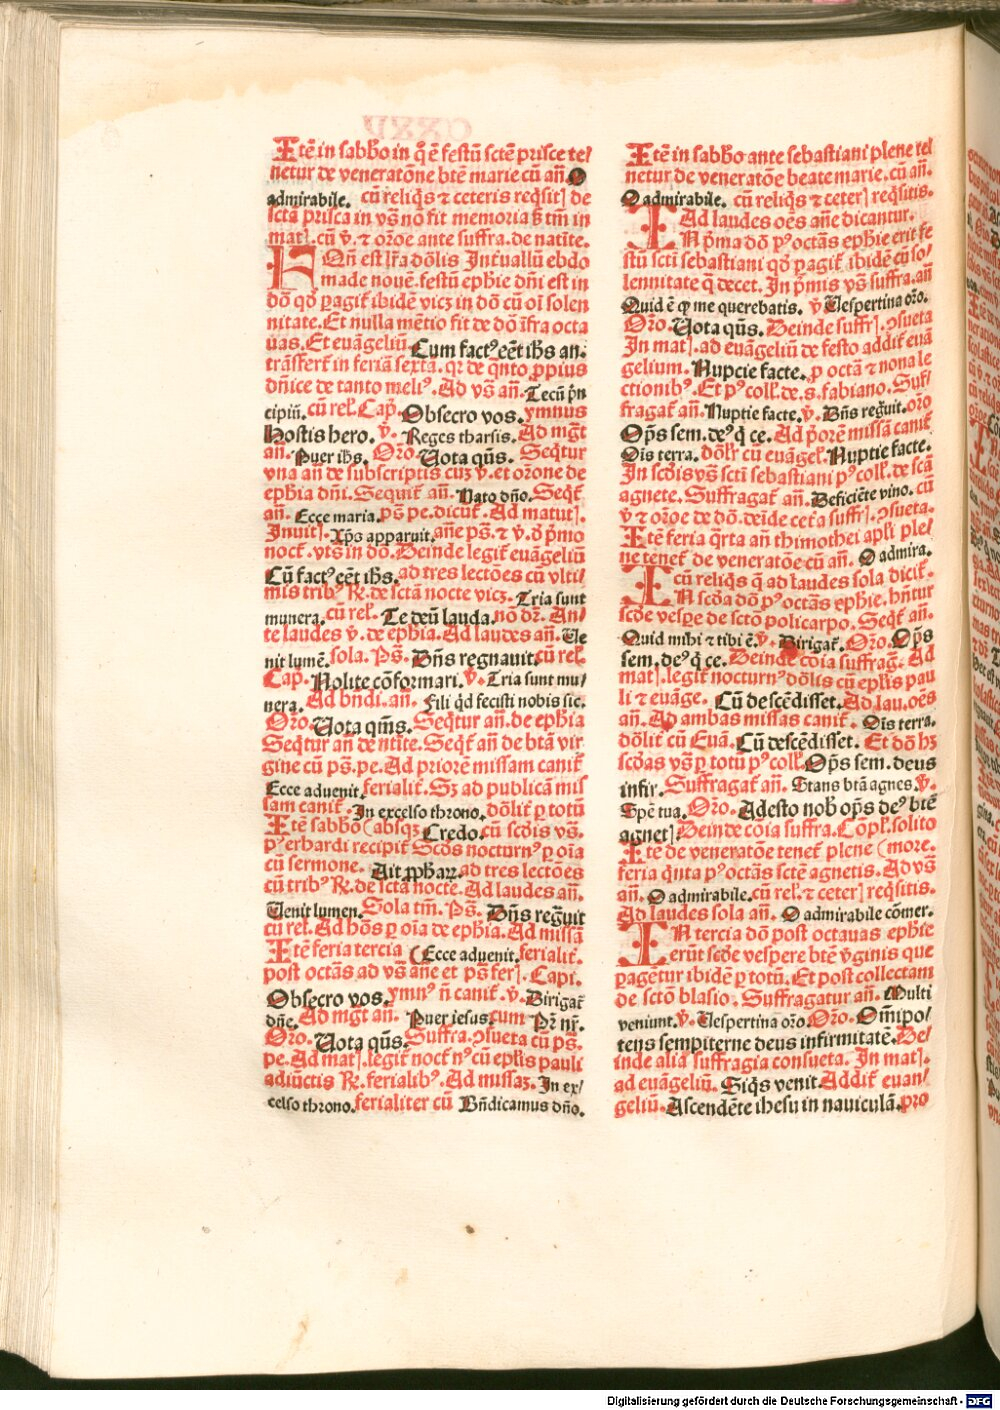 Itē in sabbo in q̄ ē festū sctē prisce te/
netur de veneratōne btē marie cū añ. O
admirabile. cū reliqs ⁊ ceteris reqsit] de
scta prisca in vg̃ nō fit memoria sꝫ tm̄ in
mat]. cū v̄. ⁊ orōe ante suffra. de natīte.
Non est lr̄a dōlis Intuallū ebdo
made noue. festū ephie dñi est in
dō qd̄ pagit̄ ibidē vicꝫ in dō cū oī solen
nitate. Et nulla mētio fit de dō īfra octa
uas. Et euāgeliū Cum fact⁹ eēt ihs an.
trāsfert̄ in feriā sexta. qr de q̄nto ꝓpius
dñice de tanto meli⁹. Ad vs̄ añ. Tecū p̄n
cipiū. cū rel. Cap̄. Obsecro vos. ymnus
Hostis hero. v̄. Reges tharsis. Ad mgt̄
añ. Puer ihs. Oro. Vota qūs. Seqtur
vna añ de subscriptis cuꝫ v̄. et orōne de
ephia dñi. Sequit̄ añ. Nato dño. Seqt̄
añ. Ecce maria. ps̄ pe. dicut̄. Ad matut].
Inuit]. Xps apparuit. añe ps̄. ⁊ v̄. d̄ p̄mo
noct̄. vts̄ in dō. Deinde legit̄ euāgeliū
Cū fact⁹ eēt ihs. ad tres lectōes cū vlti/
mis trib⁹ R̄. de scta nocte vicꝫ. Tria sunt
munera. cū rel. Te deū lauda. nō dr̄. An/
te laudes v̄. de ephia. Ad laudes añ. Ve
nit lumē. sola. Ps̄. Dñs regnauit. cū rel.
Cap̄. Nolite cōformari. v̄. Tria sunt mu/
nera. Ad bñdi. añ. Fili qd fecisti nobis sic.
Oro. Vota qm̄s. Seqtur añ. de ephia
Seqtur añ de ntīte. Seqt̄ añ de btā vir
gine cū ps̄. pe. Ad priorē missam canit̄
Ecce aduenit. ferialit̄. Sꝫ ad publicā mis
sam canit̄. In excelso throno. dōlit̄ p totū
Itē sabbo (absqꝫ Credo. cū scdis vs̄.
p⁹ erhardi recipit̄ Scds nocturn⁹ p oīa
cū sermone. Ait ꝓpharꝫ. ad tres lectōes
cū trib⁹ R̄. de scta nocte. Ad laudes añ.
Venit lumen. Sola tm̄. Ps̄. Dñs regūit
cū rel. Ad hōs p oīa de ephia. Ad missā
Itē feria tercia (Ecce aduenit. ferialit̄.
post octās ad vs̄ añe et ps̄ fer]. Capi.
Obsecro vos. ymn⁹ ñ canit̄. v̄. Dirigat̄
dñe. Ad mgt̄ añ. Puer iesus. cum Pr̄ nr̄.
Oro. Vota qūs. Suffra. ↄsueta cū ps̄.
pe. Ad mat]. legit̄ noct̄ n⁹ cū eplis pauli
adiūctis R̄. ferialib⁹. Ad missaꝫ. In ex/
celso throno. ferialiter cū Bñdicamus dño.
Itē in sabbo ante sebastiani plene rel
netur de veneratōe beate marie. cū añ.
O admirabile. cū reliqs ⁊ ceter] reqsitis.
Ad laudes oēs añe dicantur.
IN p̄ma dō p⁹ octās ephie erit fe
stū scti sebastiani qd̄ pagit̄ ibidē cū so/
lennitate q̄ decet. In p̄mis vs̄ suffra. añ
Quid ē q̄ me querebatis. v̄ Vespertina oro.
Oro. Vota qūs. Deinde suffr]. ↄsueta
In mat]. ad euāgeliū de festo addit̄ euā
gelium. Nupcie facte. p octā ⁊ nona le
ctionib⁹. Et p⁹ coll. de. s. fabiano. Suf/
fragat̄ añ. Nuptie facte. v̄. Bñs regūit. oro
Op̄s sem. de⁹ q̄ ce. Ad p̄orē missā canit̄
Ois terra. dōlr̄ cū euāgel. Nuptie facte.
In scdis vs̄ scti sebastiani p⁹ coll. de scā
agnete. Suffragat̄ añ. Deficiēte vino. cū
v̄ ⁊ orōe de dō. deīde ceta suffr]. ↄsueta.
Itē feria q̄rta añ thimothei apli ple/
ne tenet̄ de veneratōe cū añ. O admira.
cū reliqs q̄ ad laudes sola dicit̄.
IN scda dō p⁹ octās ephie. hñtur
scde vespe de scto policarpo. Seqt̄ añ.
Quid mihi ⁊ tibi ē. v̄. Dirigat̄. Oro. Op̄s
sem. de⁹ q̄ ce. Deinde cōia suffrag̃. Ad
mat]. legit̄ nocturn⁹ dōlis cū eplis pau
li ⁊ euāge. Cū descēdisset. Ad lau. oēs
añ. Ad ambas missas canit̄. Ois terra.
dōlit̄ cū Euā. Cū descēdisset. Et dō hꝫ
scdas vs̄ p totū p⁹ coll. Op̄s sem. deus
infir. Suffragat̄ añ. Stans btā agnes. v̄.
Spē tua. Oro. Adesto nob op̄s de⁹ btē
agnet] Deinde cōia suffra. Cōpl. solito
Itē de veneratōe tenet̄ plene (more.
feria q̄nta p⁹ octās sctē agnetis. Ad vs̄
añ. O admirabile. cū rel. ⁊ ceter] reqsitis.
Ad laudes sola añ. O admirabile cōmer.
IN tercia dō post octauas ephie
erūt scde vespere btē v̄ginis que
pagētur ibidē p totū. Et post collectam
de sctō blasio. Suffragatur añ. Multi
veniunt. v̄. Vespertina oro. Oro. Om̄ipo/
tens sempiterne deus infirmitatē. De/
inde alia suffragia consueta. In mat].
ad euāgeliū. Siqs venit. Addit̄ euan/
geliū. Ascendēte ihesu in nauiculā. pro
Digitalisierung gefördert durch die Deutsche Forschungsgemeinschaft - DFG